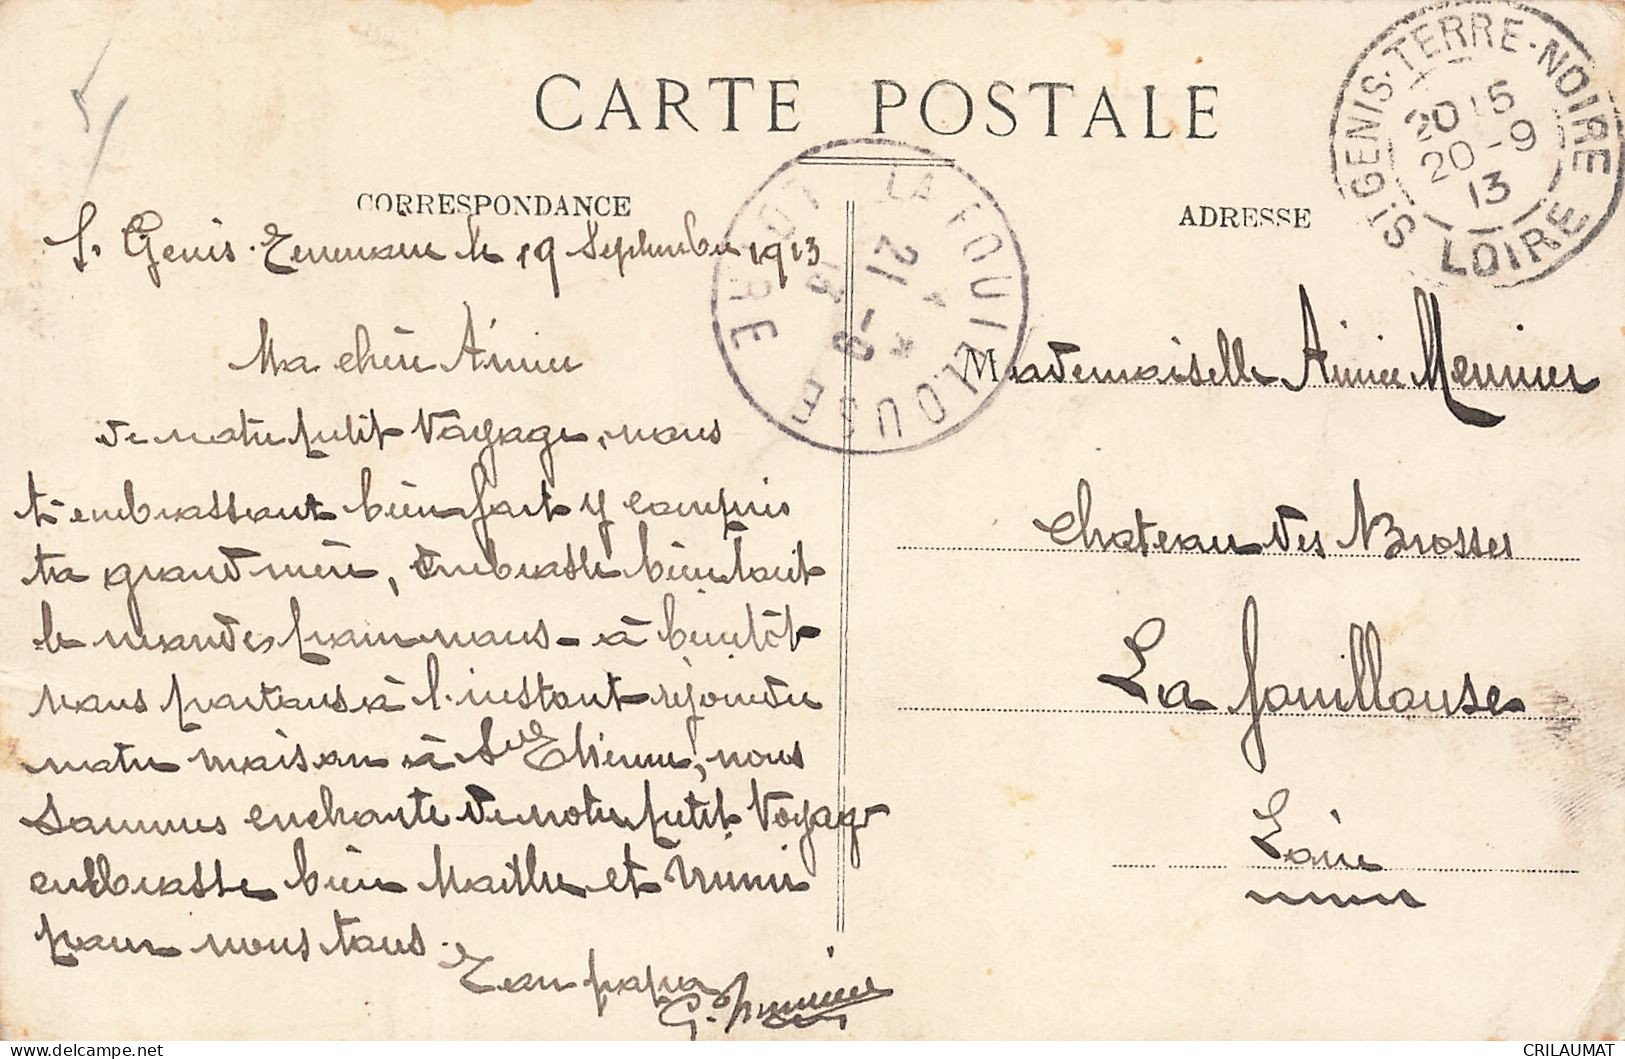 CARTE POSTALE
CORRESPONDANCE
ADRESSE
St GENIS-TERRE-NOIRE
20 15
20 -9
13
LOIRE
LA FOUILLOUSE
21 -9
13
LOIRE
St Genis-Terrenoire le 19 Septembre 1913
Ma chère Aimée
de notre petit Voyage, nous
t'embrassant bien fort y compris
ta grand mère, embrasse bien tout
le monde, pour nous - à bientôt
nous partons à l'instant rejoindre
notre maison à St Etienne, nous
sommes enchanté de notre petit Voyage
embrasse bien Marthe et Mimi
pour nous tous.
Ton papa
Mademoiselle Aimée Meunier
Chateau des Brosses
La fouillouse
Loire
CRILAUMAT